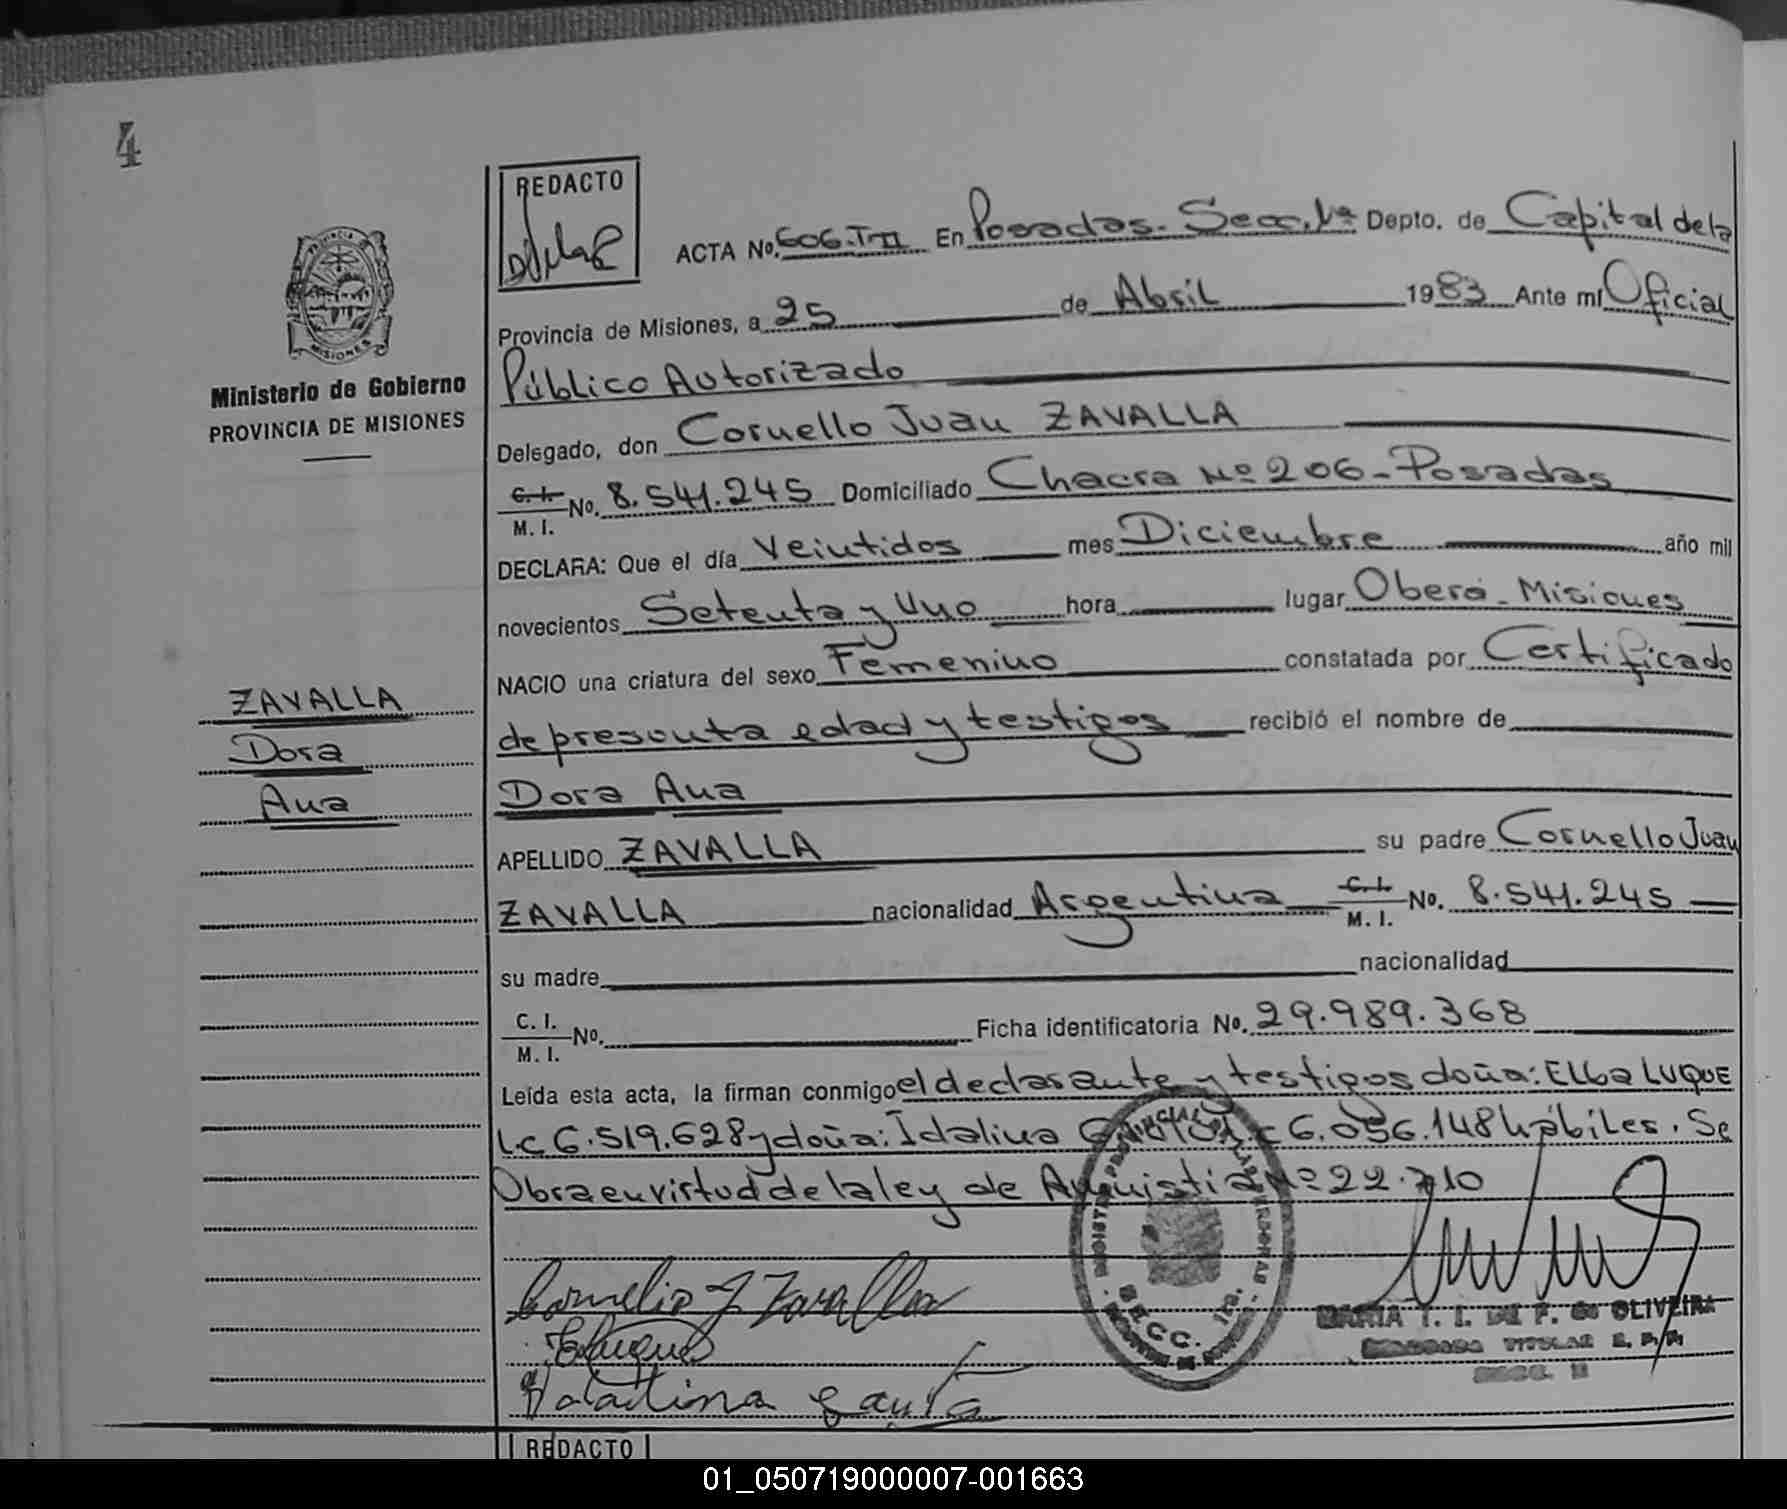 4
REDACTO
ACTA No. 606.T II En Posadas. Secc. 1ª Depto. de Capital de la
Provincia de Misiones, a 25 de Abril 1983 Ante mí Oficial
Público Autorizado
Delegado, don Cornello Juan ZAVALLA
C. I. M. I. No. 8.541.245 Domiciliado Chacra Nº 206 - Posadas
DECLARA: Que el día Veintidos mes Diciembre año mil
novecientos Setenta y Uno hora lugar Oberá - Misiones
NACIO una criatura del sexo Femenino constatada por Certificado
de presunta edad y testigos recibió el nombre de
Dora Ana
APELLIDO ZAVALLA su padre Cornello Juan
ZAVALLA nacionalidad Argentina C. I. M. I. No. 8.541.245
su madre nacionalidad
C. I. M. I. No. Ficha identificatoria No. 29.989.368
Leída esta acta, la firman conmigo el declarante y testigos doña: Elba LUQUE
L.C 6.519.628 y doña: Idalina L.C 6.056.148 hábiles. Se
Obra en virtud de la ley de Amnistía Nº 22.710
Cornelio J Zavalla
ELuque
MARIA T. I. DE F. de OLIVEIRA
TITULAR R. P. P.
SECC.
REDACTO
PROVINCIA
MISIONES
Ministerio de Gobierno
PROVINCIA DE MISIONES
ZAVALLA
Dora
Ana
REGISTRO PROVINCIAL DE LAS PERSONAS
SECC. 1ra.
01_050719000007-001663